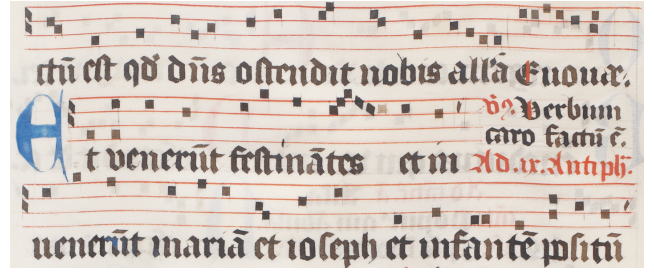 ctũ est qd̛ dñs ostendit nobis allã Euouae.
℣. Verbum
caro factũ ẽ.
Et venerũt festinãtes et in Ad. ix. Antiph̃.
uenerũt mariã et ioseph et infantẽ positũ